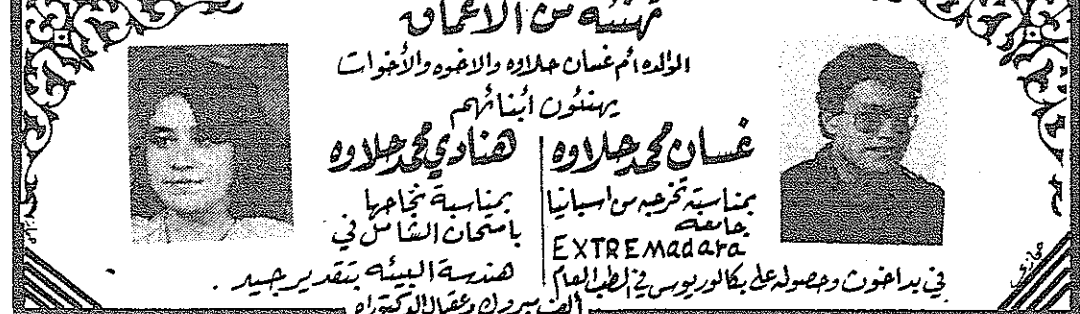 تهنئه من الاعماق
الوالده أم غسان حلاوه والاخوه والأخوات
يهنئون أبنائهم
غسان محمد حلاوه
بمناسبة تخرجه من اسبانيا
جامعه
EXTREMadara
في بداخوث وحصوله على بكالوريوس في الطب العام
هنادي محمد حلاوه
بمناسبة نجاحها
بامتحان الشامل في
هندسة البيئه بتقدير جيد .
ألف مبروك وعقبال الدكتوراه